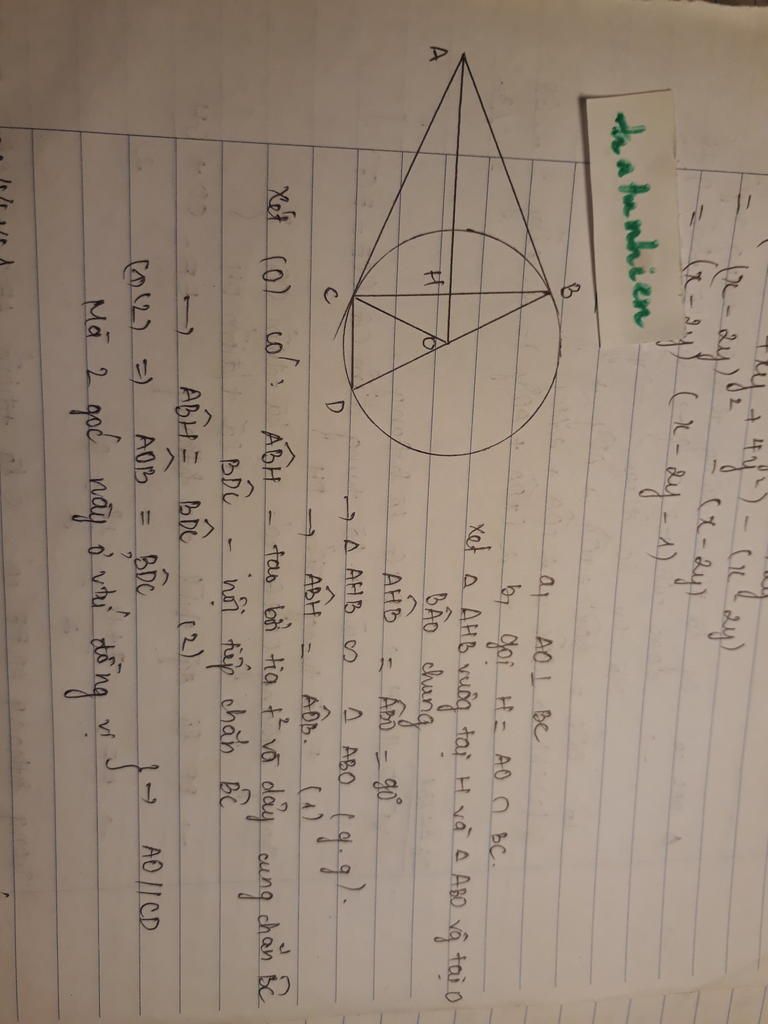 + xy + 4y²) - (x - 2y)
= (x - 2y)² - (x - 2y)
= (x - 2y) (x - 2y - 1)
thatunhien
A
B
H
C
O
D
a, AO ⊥ BC
b, gọi H = AO ∩ BC.
Xét △ AHB vuông tại H và △ ABO vg tại O
BÂO chung
AĤB = AB̂O = 90°
→ △ AHB ∽ △ ABO (g.g).
→ AB̂H = AÔB. (1)
Xét (O) có: AB̂H - tạo bởi tia t² và dây cung chắn BC
BD̂C - nội tiếp chắn BC
→ AB̂H = BD̂C (2)
(1)(2) => AÔB = BD̂C
Mà 2 góc này ở vị trí đồng vị } → AO // CD